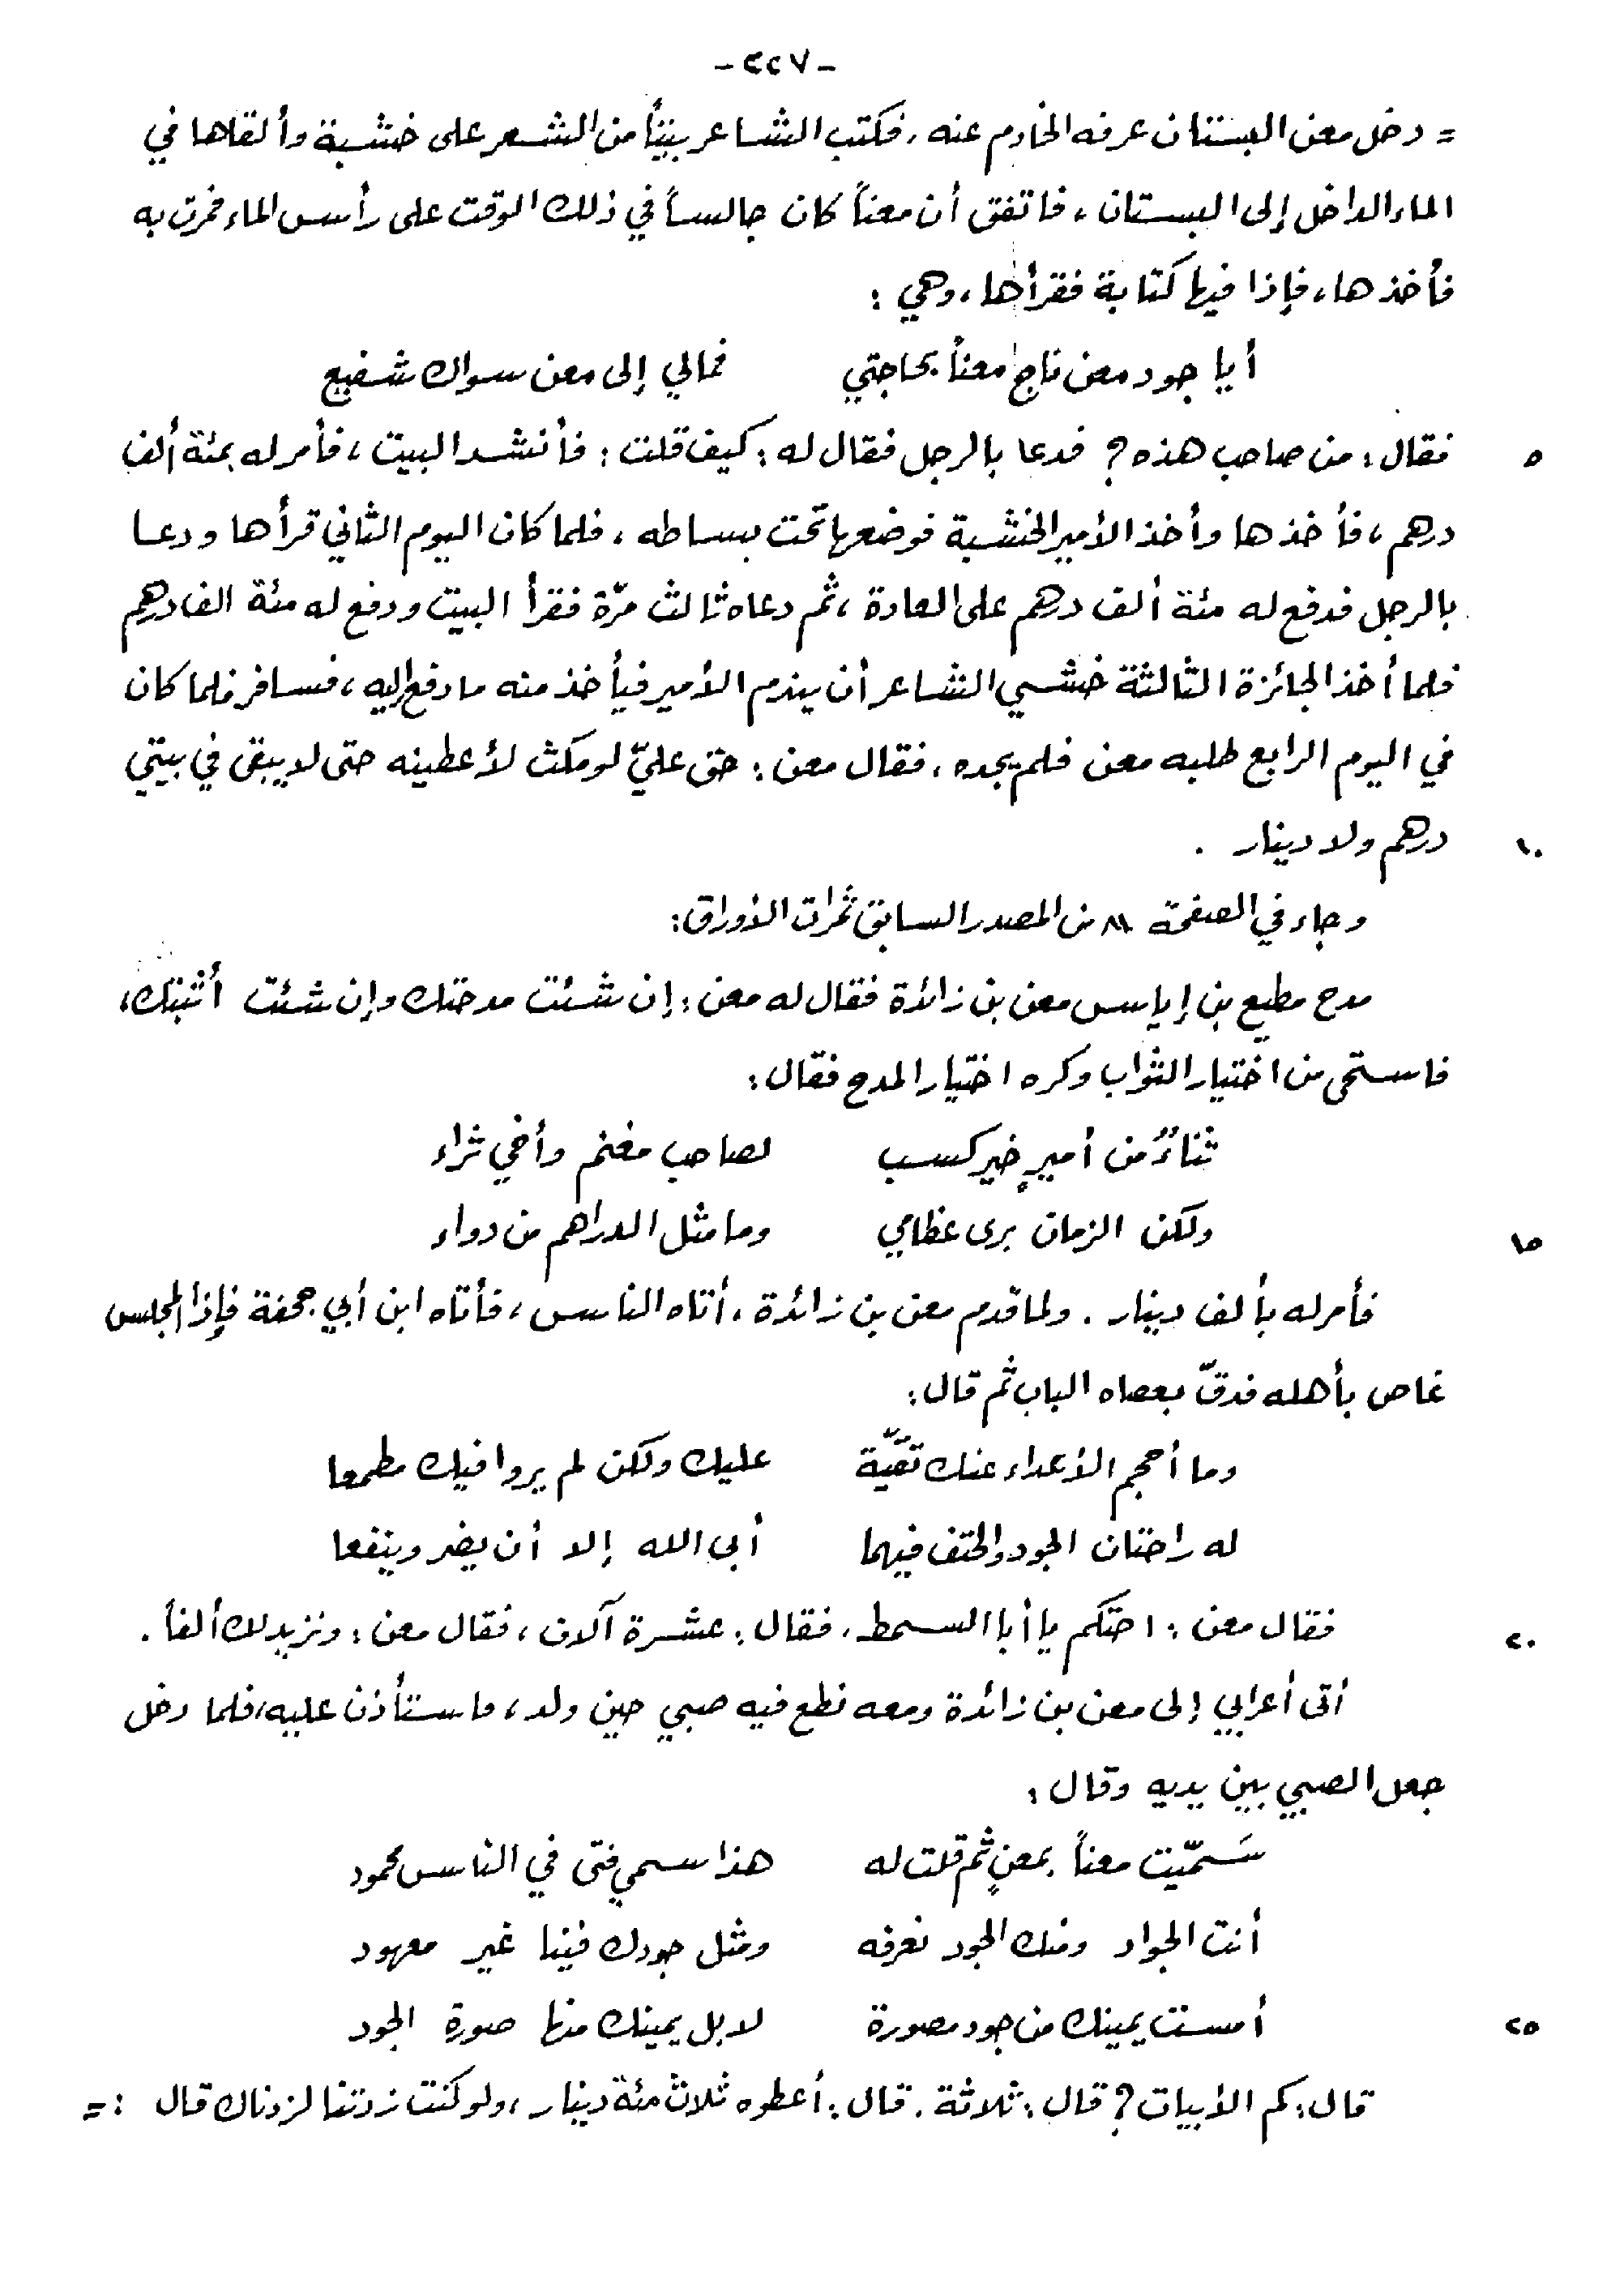 -٢٢٧-
= دخل معن البستان عرفه الخادم عنه، فكتب الشاعر بيتاً من الشعر على خشبة وألقاها في
الماء الداخل إلى البستان، فاتفق أن معناً كان جالساً في ذلك الوقت على رأس الماء فمرت به
فأخذها، فإذا فيها كتابة فقرأها، وهي :
أيا جود معن ناجِ معناً بحاجتي فمالي إلى معن سواك شفيع
٥ فقال: من صاحب هذه؟ فدعا بالرجل فقال له: كيف قلت: فأنشد البيت، فأمر له بمئة ألف
درهم، فأخذها وأخذ الأمير الخشبة فوضعها تحت بساطه، فلما كان اليوم الثاني قرأها ودعا
بالرجل فدفع له مئة ألف درهم على العادة، ثم دعاه ثالث مرّة فقرأ البيت ودفع له مئة الف درهم
فلما أخذ الجائزة الثالثة خشي الشاعر أن يندم الأمير فيأخذ منه ما دفع إليه، فسافر فلما كان
في اليوم الرابع طلبه معن فلم يجده، فقال معن: حق عليّ لو مكث لأعطينه حتى لا يبقى في بيتي
١٠ درهم ولا دينار .
وجاء في الصفحة ٨١ من المصدر السابق ثمرات الأوراق:
مدح مطيع بن إياس معن بن زائدة فقال له معن: إن شئت مدحتك وإن شئت أثبتك،
فاستحى من اختيار الثواب وكره اختيار المدح فقال:
ثناءٌ من أميرٍ خير كسب لصاحب مغنم وأخي ثراء
١٥ ولكن الزمان برى عظامي وما مثل الدراهم من دواء
فأمر له بألف دينار . ولما قدم معن بن زائدة، أتاه الناس، فأتاه ابن أبي جحفة فإذا المجلس
غاص بأهله فدقّ بعصاه الباب ثم قال:
وما أحجم الأعداء عنك تقيّة عليك ولكن لم يروا فيك مطمعا
له راحتان الجود والحتف فيهما أبى الله إلا أن يضر وينفعا
٢٠ فقال معن: احتكم يا أبا السمط، فقال: عشرة آلاف، فقال معن: ونزيد لك ألفاً.
أتى أعرابي إلى معن بن زائدة ومعه نطع فيه صبي حين ولد، فاستأذن عليه، فلما دخل
جعل الصبي بين يديه وقال:
سَمّيت معناً بمعنٍ ثم قلت له هذا سمي فتى في الناس محمود
أنت الجواد ومنك الجود نعرفه ومثل جودك فينا غير معهود
٢٥ أمست يمينك من جود مصورة لا بل يمينك منها صورة الجود
قال: كم الأبيات؟ قال: ثلاثة. قال: أعطوه ثلاث مئة دينار، ولو كنت زدتنا لزدناك قال : =